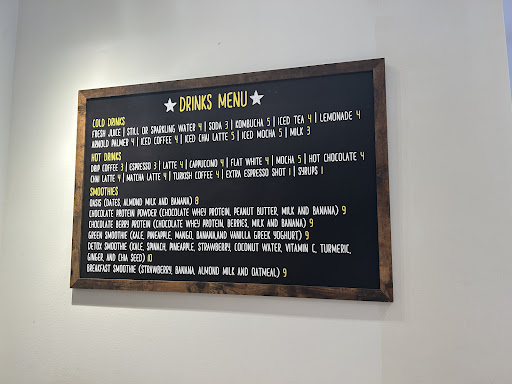 DRINKS MENU
COLD DRINKS
FRESH JUICE | STILL OR SPARKLING WATER 4 | SODA 3 | KOMBUCHA 5 | ICED TEA 4 | LEMONADE 4
ARNOLD PALMER 4 | ICED COFFEE 4 | ICED CHAI LATTE 5 | ICED MOCHA 5 | MILK 3
HOT DRINKS
DRIP COFFEE 3 | ESPRESSO 3 | LATTE 4 | CAPPUCCINO 4 | FLAT WHITE 4 | MOCHA 5 | HOT CHOCOLATE 4
CHAI LATTE 4 | MATCHA LATTE 4 | TURKISH COFFEE 4 | EXTRA ESPRESSO SHOT 1 | SYRUPS 1
SMOOTHIES
OASIS (DATES, ALMOND MILK AND BANANA) 8
CHOCOLATE PROTEIN POWDER (CHOCOLATE WHEY PROTEIN, PEANUT BUTTER, MILK AND BANANA) 9
CHOCOLATE BERRY PROTEIN (CHOCOLATE WHEY PROTEIN, BERRIES, MILK AND BANANA) 9
GREEN SMOOTHIE (KALE, PINEAPPLE, MANGO, BANANA,AND VANILLA GREEK YOGHURT) 9
DETOX SMOOTHIE (KALE, SPINACH, PINEAPPLE, STRAWBERRY, COCONUT WATER, VITAMIN C, TURMERIC,
GINGER, AND CHIA SEED) 10
BREAKFAST SMOOTHIE (STRAWBERRY, BANANA, ALMOND MILK AND OATMEAL) 9